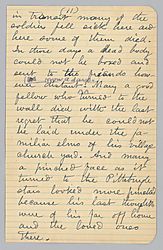 (11)
in transit many of the
soldiers fell sick here and
here some of them died.
In those days a dead body
could not be boxed and
sent to the friends
distant. Many a good
fellow who turned to the
wall died with the last
regret that he could not
be laid under the fa-
miliar elms of his village
church yard. And many
a pinched face as it
turned to the Pittsburgh
stars looked more pinched
because his last thoughts
were of his far off home
and the loved ones
there.